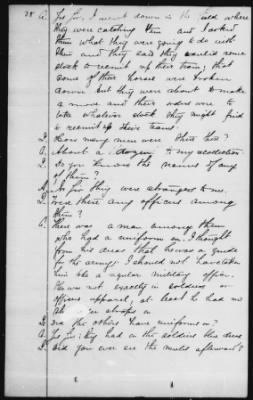 28 A. Yes Sir; I went down in the field where
they were catching them and I asked
them what they were going to do with
them and they said they wanted some
stock to recruit up their train; that
some of their horses were broken
down but they were about to make
a move and their orders were to
take whatever stock they might find
to recruit up their trains.
Q. How many men were there there?
A. About a dozen to my recollection.
Q. Do you know the names of any
of them?
A. No Sir they were strangers to me.
Q. Were there any officers among
them?
A. There was a man among them
who had a uniform on. I thought
from his dress that he was a guide
for the army; I should not have taken
him to be a regular military officer.
He was not exactly in soldiers or
officers apparel, at least he had no
straps on
Q. Did the others have uniforms on?
A. Yes Sir; they had on the soldiers blue dress
Q. Did you ever see the mules afterward?